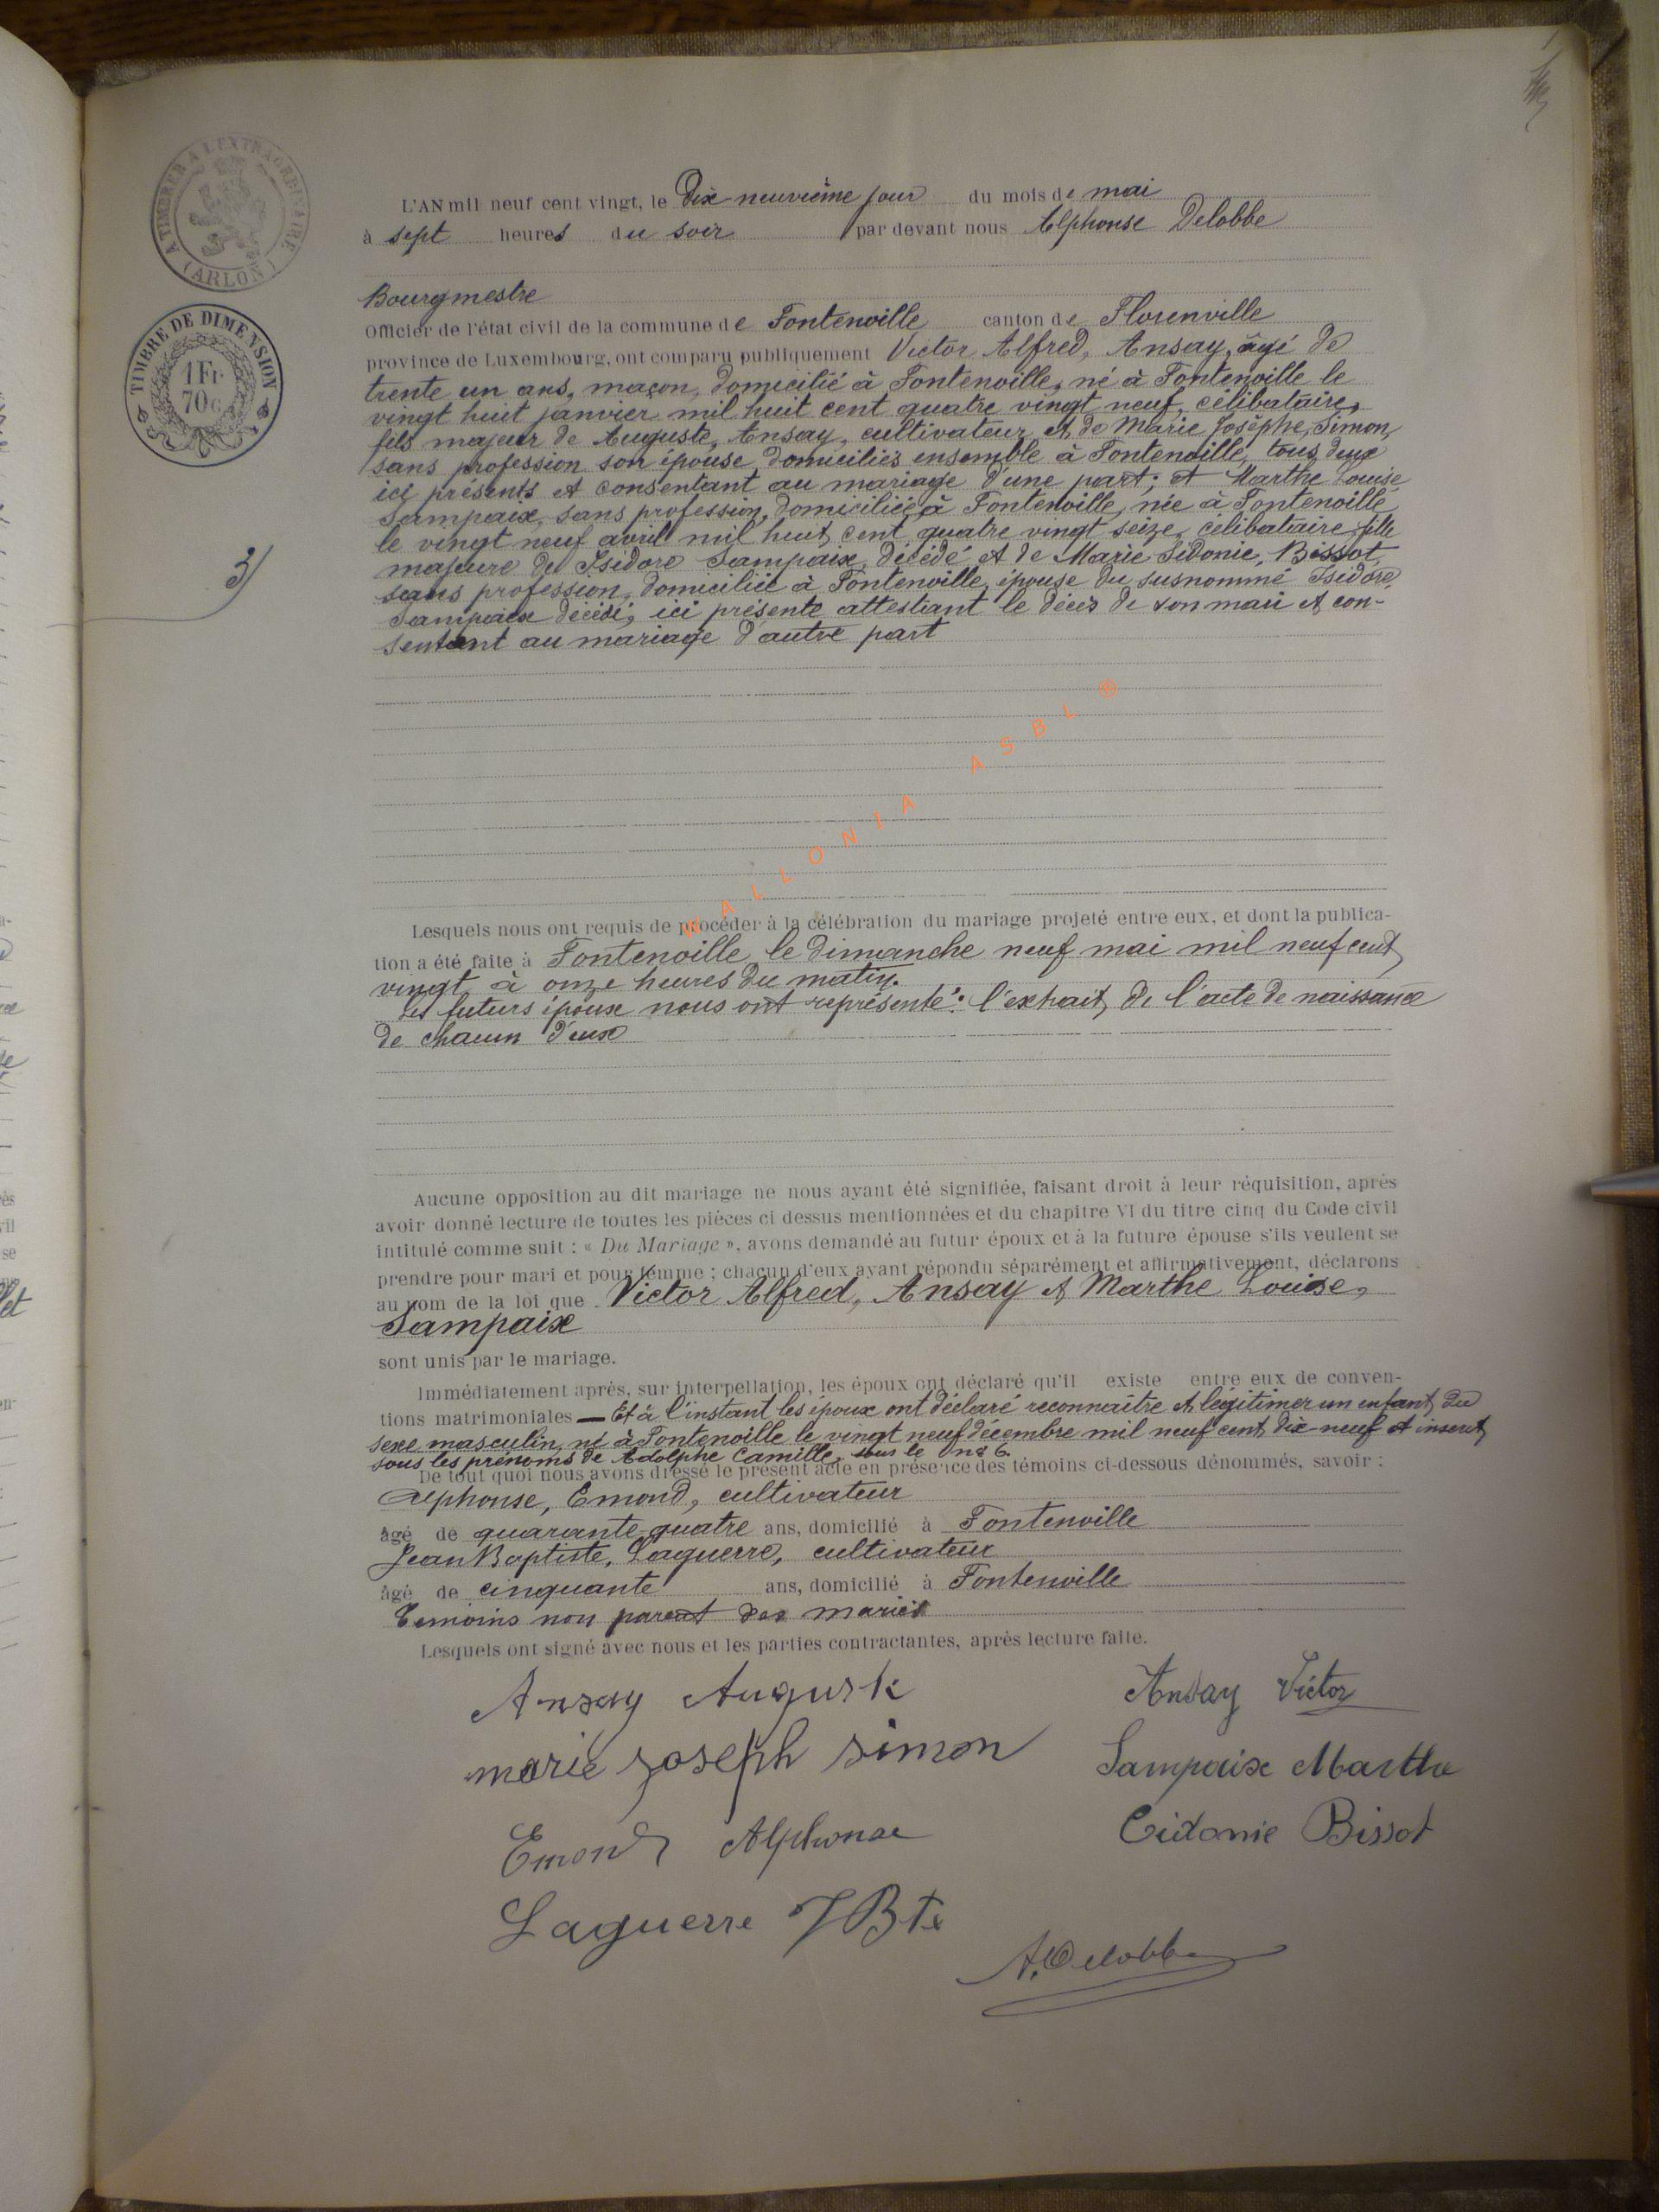 A TIMBRER A L'EXTRAORDINAIRE
(ARLON)
TIMBRE DE DIMENSION
1 Fr
70 c
3/
L'AN mil neuf cent vingt, le Dix-neuvième jour du mois de mai
à sept heures du soir par devant nous Alphonse Delobbe
Bourgmestre
Officier de l'état civil de la commune de Fontenoille canton de Florenville
province de Luxembourg, ont comparu publiquement Victor Alfred, Ansay, âgé de
trente un ans, maçon, domicilié à Fontenoille, né à Fontenoille le
vingt huit janvier mil huit cent quatre vingt neuf, célibataire,
fils majeur de Auguste, Ansay, cultivateur et de Marie Josèphe, Simon,
sans profession son épouse, domiciliés ensemble à Fontenoille, tous deux
ici présents et consentant au mariage d'une part; et Marthe Louise
Sampaix, sans profession, domiciliée à Fontenoille, née à Fontenoille
le vingt neuf avril mil huit cent quatre vingt seize, célibataire, fille
majeure de Isidore Sampaix, décédé et de Marie Sidonie, Bissot,
sans profession, domiciliée à Fontenoille, épouse du susnommé Isidore,
Sampaix décédé, ici présente attestant le décès de son mari et con-
sentant au mariage d'autre part
WALLONIA ASBL ®
Lesquels nous ont requis de procéder à la célébration du mariage projeté entre eux, et dont la publica-
tion a été faite à Fontenoille le dimanche neuf mai mil neuf cent
vingt à onze heures du matin.
Les futurs époux nous ont représenté: l'extrait de l'acte de naissance
de chacun d'eux
Aucune opposition au dit mariage ne nous ayant été signifiée, faisant droit à leur réquisition, après
avoir donné lecture de toutes les pièces ci dessus mentionnées et du chapitre VI du titre cinq du Code civil
intitulé comme suit : « Du Mariage », avons demandé au futur époux et à la future épouse s'ils veulent se
prendre pour mari et pour femme ; chacun d'eux ayant répondu séparément et affirmativement, déclarons
au nom de la loi que Victor Alfred, Ansay et Marthe Louise,
Sampaix
sont unis par le mariage.
Immédiatement après, sur interpellation, les époux ont déclaré qu'il existe entre eux de conven-
tions matrimoniales — Et à l'instant les époux ont déclaré reconnaître et légitimer un enfant du
sexe masculin, né à Fontenoille le vingt neuf décembre mil neuf cent dix-neuf et inscrit
sous les prénoms de Adolphe Camille, sous le n° 6.
De tout quoi nous avons dressé le présent acte en présence des témoins ci-dessous dénommés, savoir :
Alphonse, Emond, cultivateur
âgé de quarante-quatre ans, domicilié à Fontenoille
Jean Baptiste, Laguerre, cultivateur
âgé de cinquante ans, domicilié à Fontenoille
Témoins non parent des mariés
Lesquels ont signé avec nous et les parties contractantes, après lecture faite.
Ansay Auguste
Ansay Victor
marie joseph simon
Sampaix Marthe
Emond Alphonse
Cidonie Bissot
Laguerre JBte
A. Delobbe